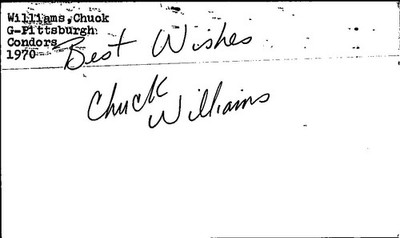 Williams,Chuck
G-Pittsburgh
Condors
1970
Best Wishes
Chuck
Williams